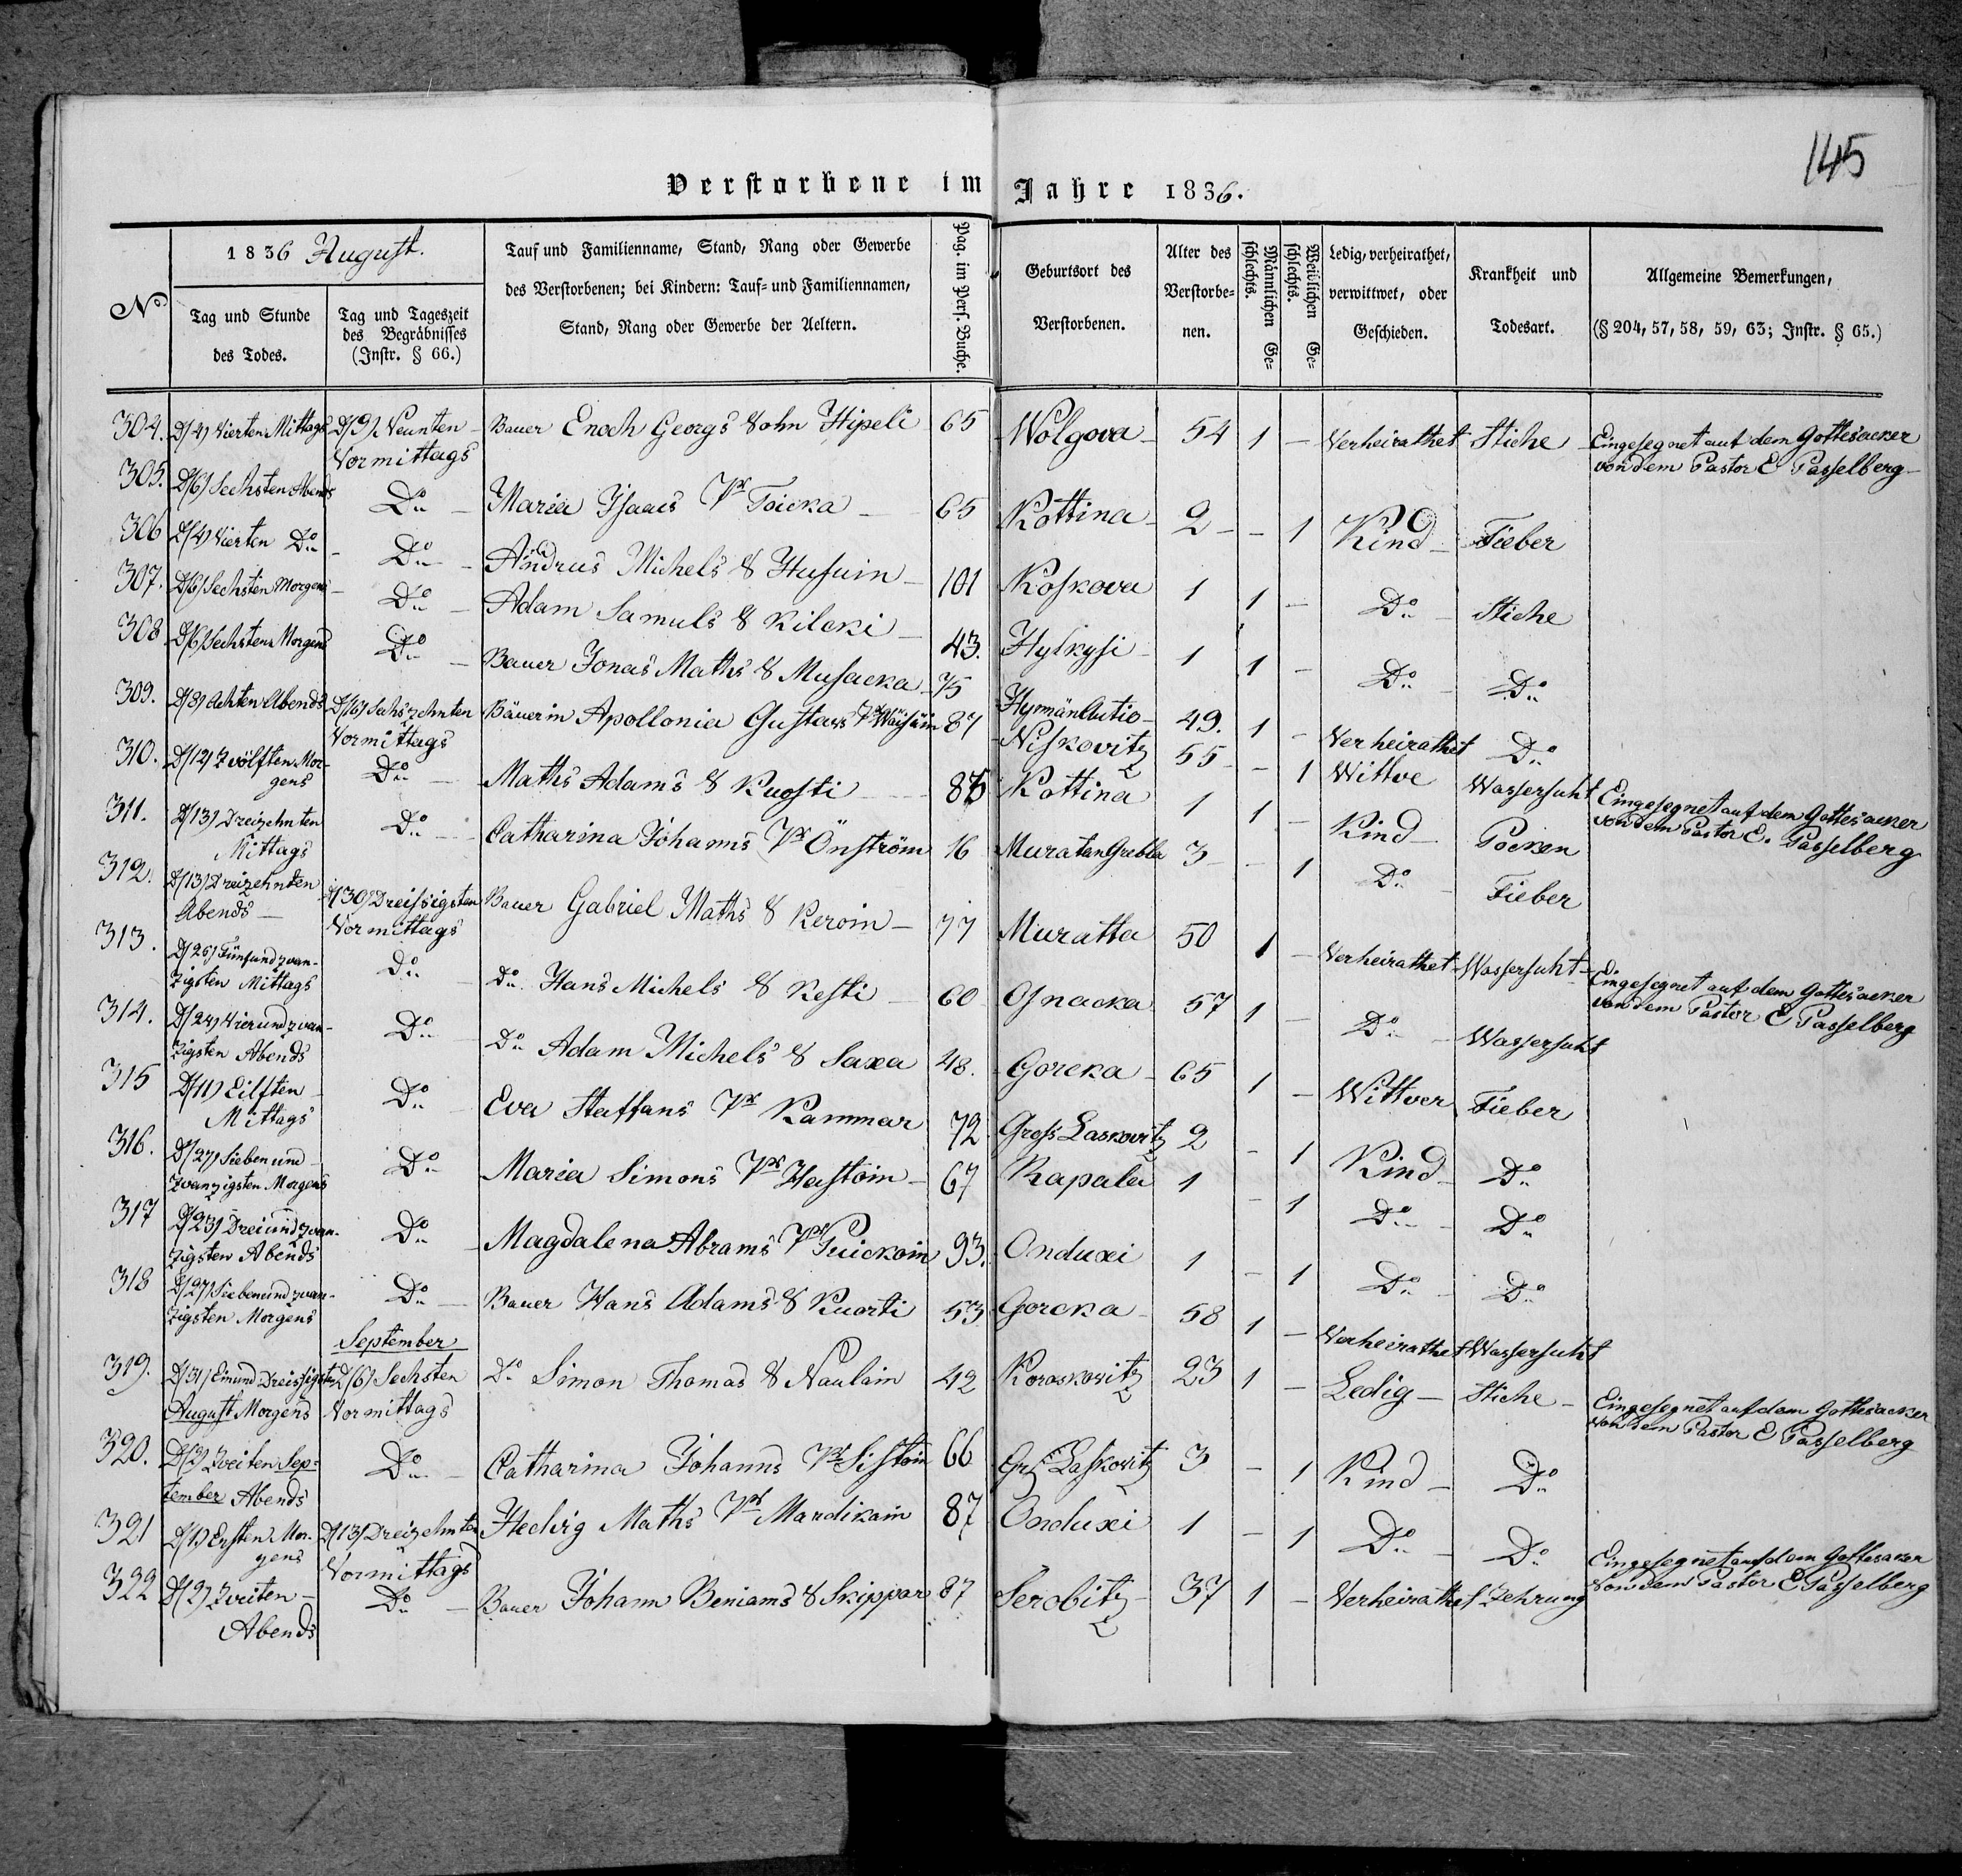 145
Verstorbene im Jahre 1836.
No
1836 August.
Tag und Stunde des Todes.
Tag und Tageszeit des Begräbnisses (Instr. § 66.)
Tauf und Familienname, Stand, Rang oder Gewerbe des Verstorbenen; bei Kindern: Tauf- und Familiennamen, Stand, Rang oder Gewerbe der Aeltern.
Pag. im Pers. Buche.
Geburtsort des Verstorbenen.
Alter des Verstorbenen.
Männlichen Geschlechts.
Weiblichen Geschlechts.
Ledig, verheirathet, verwittwet, oder Geschieden.
Krankheit und Todesart.
Allgemeine Bemerkungen, (§ 204, 57, 58, 59, 63; Instr. § 65.)
304. D(4) Vierten Mittags D(9) Neunten Vormittags Bauer Enoch Georgs Sohn Hipeli 65 Wolgova 54 1 – Verheirathet Stiche Eingesegnet auf dem Gottesacker von dem Pastor E Passelberg
305. D(6) Sechsten Abends Do Maria Isaacs Tr Toicka 65 Kottina 2 – 1 Kind Fieber
306 D(4) Vierten Do Do Andrus Michels S Husuin 101 Koskova 1 1 – Do Stiche
307. D(6) Sechsten Morgens Do Adam Samuls S Kilcki 43. Hylkysi 1 1 – Do Do
308 D(6) Sechsten Morgens Do Bauer Jonas Maths S Musacka 75 HyrmänAutio 49. 1 – Verheirathet Do
309. D(8) Achten Abends D(16) Sechszehnten Vormittags Bäuerin Apollonia Gustavs Tr Waisäin 87 Niskovitz 55 – 1 Wittve Wassersuht Eingesegnet auf dem Gottesacker von dem Pastor E. Passelberg
310. D(12) Zwölften Morgens Do Maths Adams S Kuosti Kottina 1 1 – Kind Pocken
311. D(13) Dreizehnten Mittags Do Catharina Johanns Tr Önström 16 MuratanGrebla 3 – 1 Do Fieber
312. D(13) Dreizehnten Abends D(30) Dreissigsten Vormittags Bauer Gabriel Maths S Keroin 77 Muratta 50 1 – Verheirathet Wassersuht Eingesegnet auf dem Gottesacker von dem Pastor E Passelberg
313. Fünfundzwanzigsten Mittags Do Do Hans Michels S Kesti 60 Osnacka 57 1 – Do Wassersuht
314. D(24) Vierundzwanzigsten Abends Do Do Adam Michels S Saxa 48. Gorcka 65 1 – Wittver Fieber
315 D(11) Eilften Mittags Do Eva Staffans Tr Kammar 72 Gross Laskovitz 2 – 1 Kind Do
316. D(27) Sieben und zwanzigsten Morgens Do Maria Simons Tr Hastoin 67 Kapala 1 – 1 Do Do
317 D(23) Dreiundzwanzigsten Abends Do Magdalena Abrams Tr Puickoin 93. Onduxi 1 – 1 Do Do
318 D(27) Siebenundzwanzigsten Morgens Do Bauer Hans Adams S Kuorti 53 Gorcka 58 1 – Verheirathet Wassersuht
September
319. D(31) Einund Dreissigsten August Morgens D(6) Sechsten Vormittags Do Simon Thomas S Naulain 42 Koroskovitz 23 1 – Ledig Stiche Eingesegnet auf dem Gottesacker von dem Pastor E Passelberg
320. D(2) Zveiten September Abends Do Catharina Johanns Tr Sistoin 66 Grß Laskovitz 3 – 1 Kind Do
321 D(1) Ersten Morgens D(13) Dreizehnten Vormittags Hedvig Maths Tr Mardikain 87 Onduxi 1 – 1 Do Do Eingesegnet auf dem Gottesacker von dem Pastor E Passelberg
322 D(2) Zveiten Abends Do Bauer Johann Beniams S Skippar 87 Serobitz 37 1 – Verheirathet Zehrung